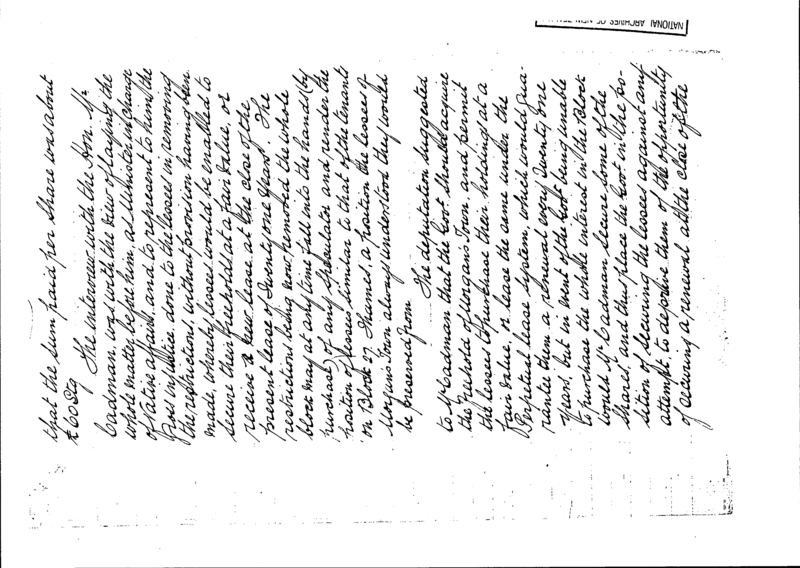 that the sum paid per share was about
£60 Stg
The interview with the Hon. Mr
Cadman, was with the view of laying the
whole matter before him, as Minister in charge
of Native affairs and to represent to him the
gross injustice done to the lessees in removing
the restrictions, without provision having been
made, whereby lessees would be enabled to
secure their freeholds at a fair value, or
receive a new lease at the close of the
present lease of Twenty one years. The
restrictions being now removed the whole
block may at any time fall into the hands (by
purchase) of any Speculator and render the
position of lessees similar to that of the tenants
on Block 27 Thames, a position the lessees of
Morgan's Town always understood they would
be preserved from
The deputation suggested
to Mr Cadman that the Govt should acquire
the freehold of Morgan's Town, and permit
the lessees to purchase their holding at a
fair value, or lease the same under the
Perpetual lease system, which would gua-
rantee them a renewal every Twenty one
years, but in event of the Govt being unable
to purchase the whole interest in the Block
would Mr Cadman secure some of the
shares, and thus place the Govt in the po-
sition of securing the lessees against any
attempt to deprive them of the opportunity
of securing a renewal at the close of the
NATIONAL ARCHIVES OF NEW ZEALAND